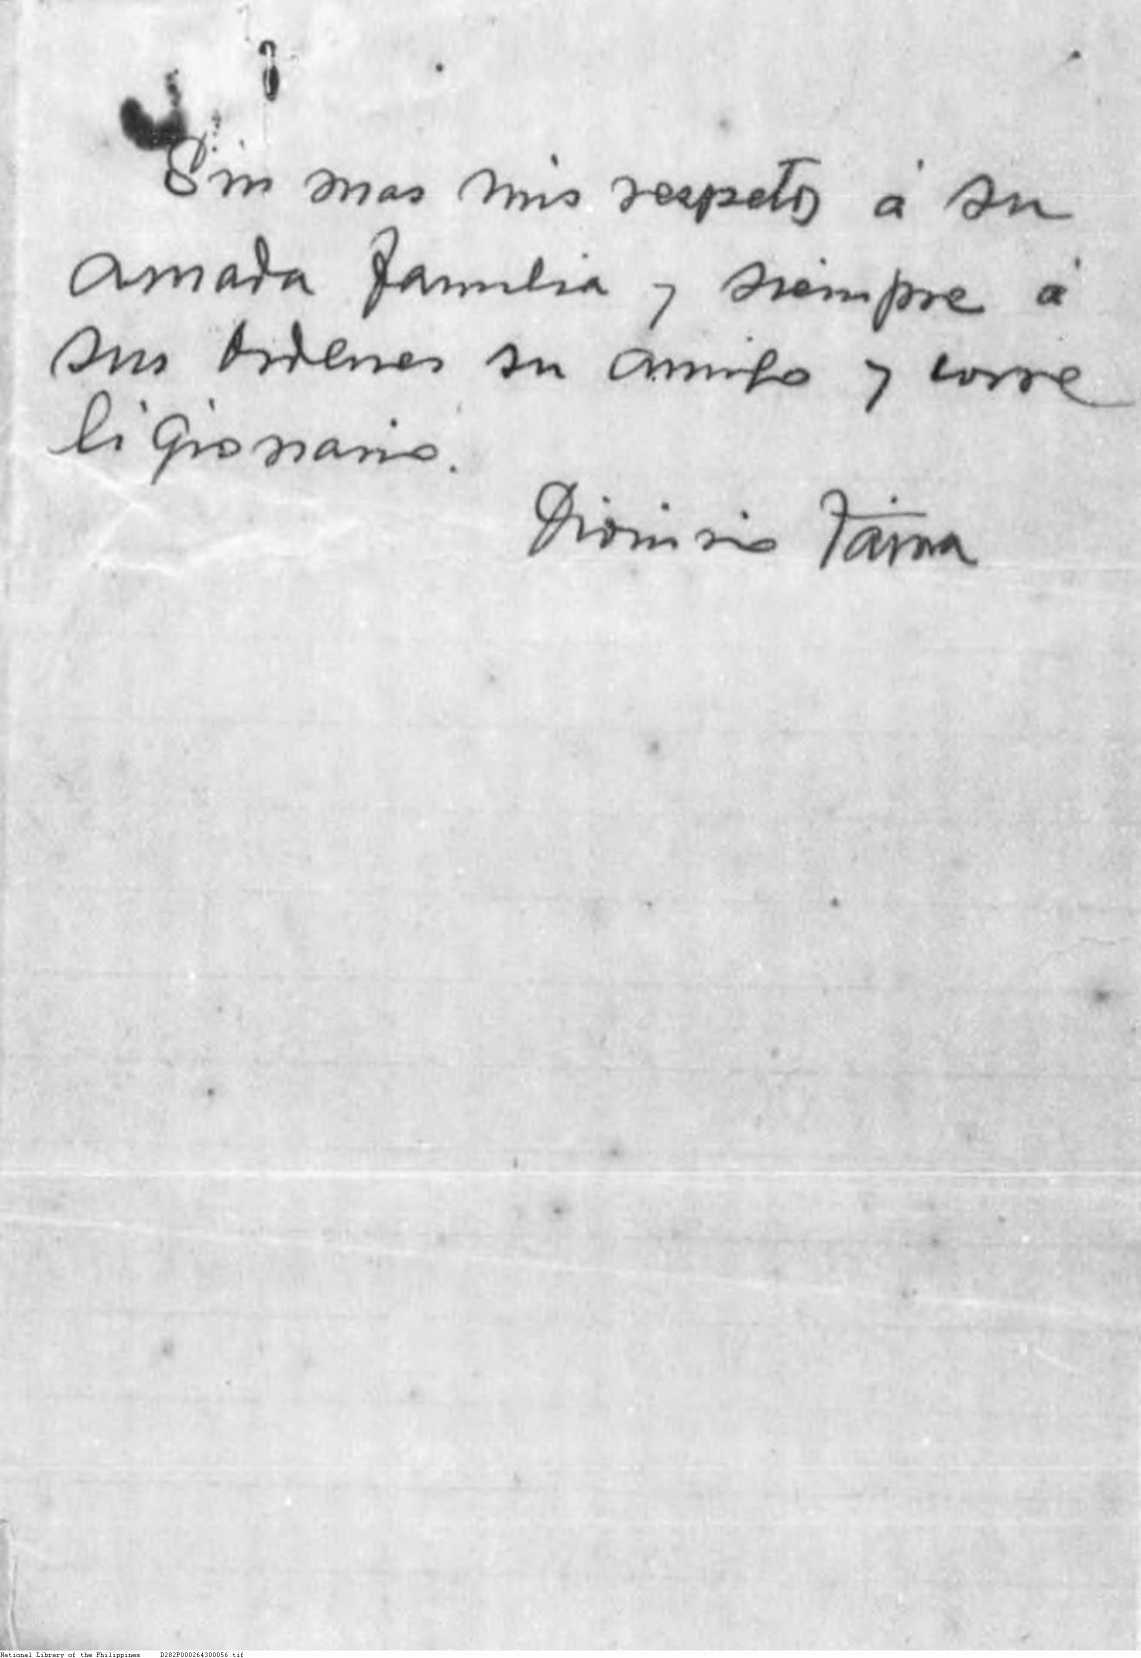 Sin mas mis respetos á su
amada familia y siempre á
sus ordenes su amigo y corre
ligionario.
Dionisio
National Library of the Philippines D282P000264300056.tif